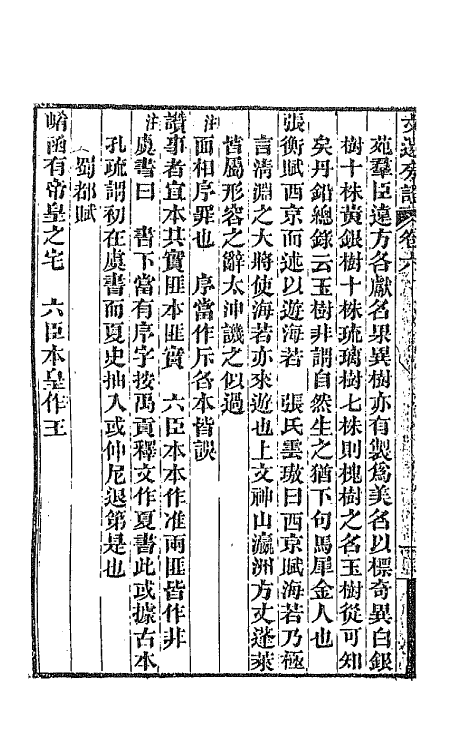 文選旁證 卷六
苑羣臣遠方各獻名果異樹亦有製爲美名以標奇異白銀
樹十株黃銀樹十株琉璃樹七株則槐樹之名玉樹從可知
矣丹鉛總錄云玉樹非謂自然生之猶下句馬犀金人也
張衡賦西京而述以遊海若　張氏雲璈曰西京賦海若乃極
言清淵之大將使海若亦來遊也上文神山瀛洲方丈蓬萊
皆屬形容之辭太沖譏之似過
注面相序罪也　序當作斥各本皆誤
讚事者宜本其實匪本匪實　六臣本本作准兩匪皆作非
注虞書曰　書下當有序字按禹貢釋文作夏書此或據古本
孔疏謂初在虞書而夏史抽入或仲尼退第是也
蜀都賦
崤函有帝皇之宅　六臣本皇作王